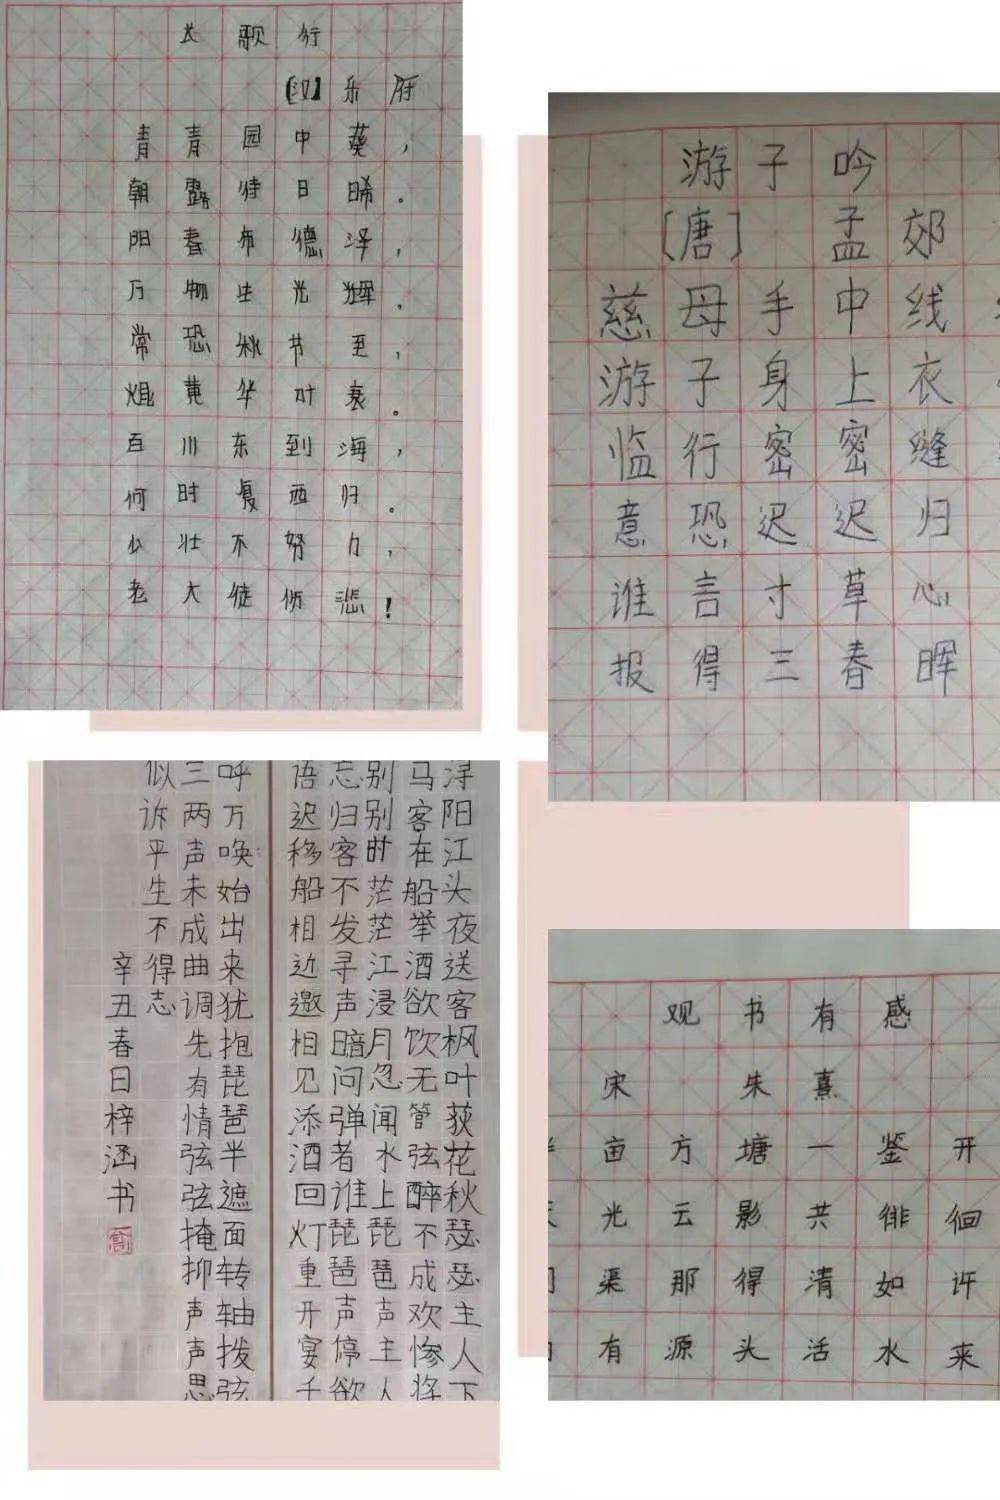 长歌行
【汉】乐府
青青园中葵，
朝露待日晞。
阳春布德泽，
万物生光辉。
常恐秋节至，
焜黄华叶衰。
百川东到海，
何时复西归。
少壮不努力，
老大徒伤悲！
游子吟
[唐] 孟郊
慈母手中线
游子身上衣
临行密密缝
意恐迟迟归
谁言寸草心
报得三春晖
浔阳江头夜送客枫叶荻花秋瑟瑟主人下
马客在船举酒欲饮无管弦醉不成欢惨将
别别时茫茫江浸月忽闻水上琵琶声主人
忘归客不发寻声暗问弹者谁琵琶声停欲
语迟移船相近邀相见添酒回灯重开宴千
呼万唤始出来犹抱琵琶半遮面转轴拨弦
三两声未成曲调先有情弦弦掩抑声声思
似诉平生不得志
辛丑春日梓涵书
观书有感
宋 朱熹
亩方塘一鉴开
光云影共徘徊
渠那得清如许
有源头活水来